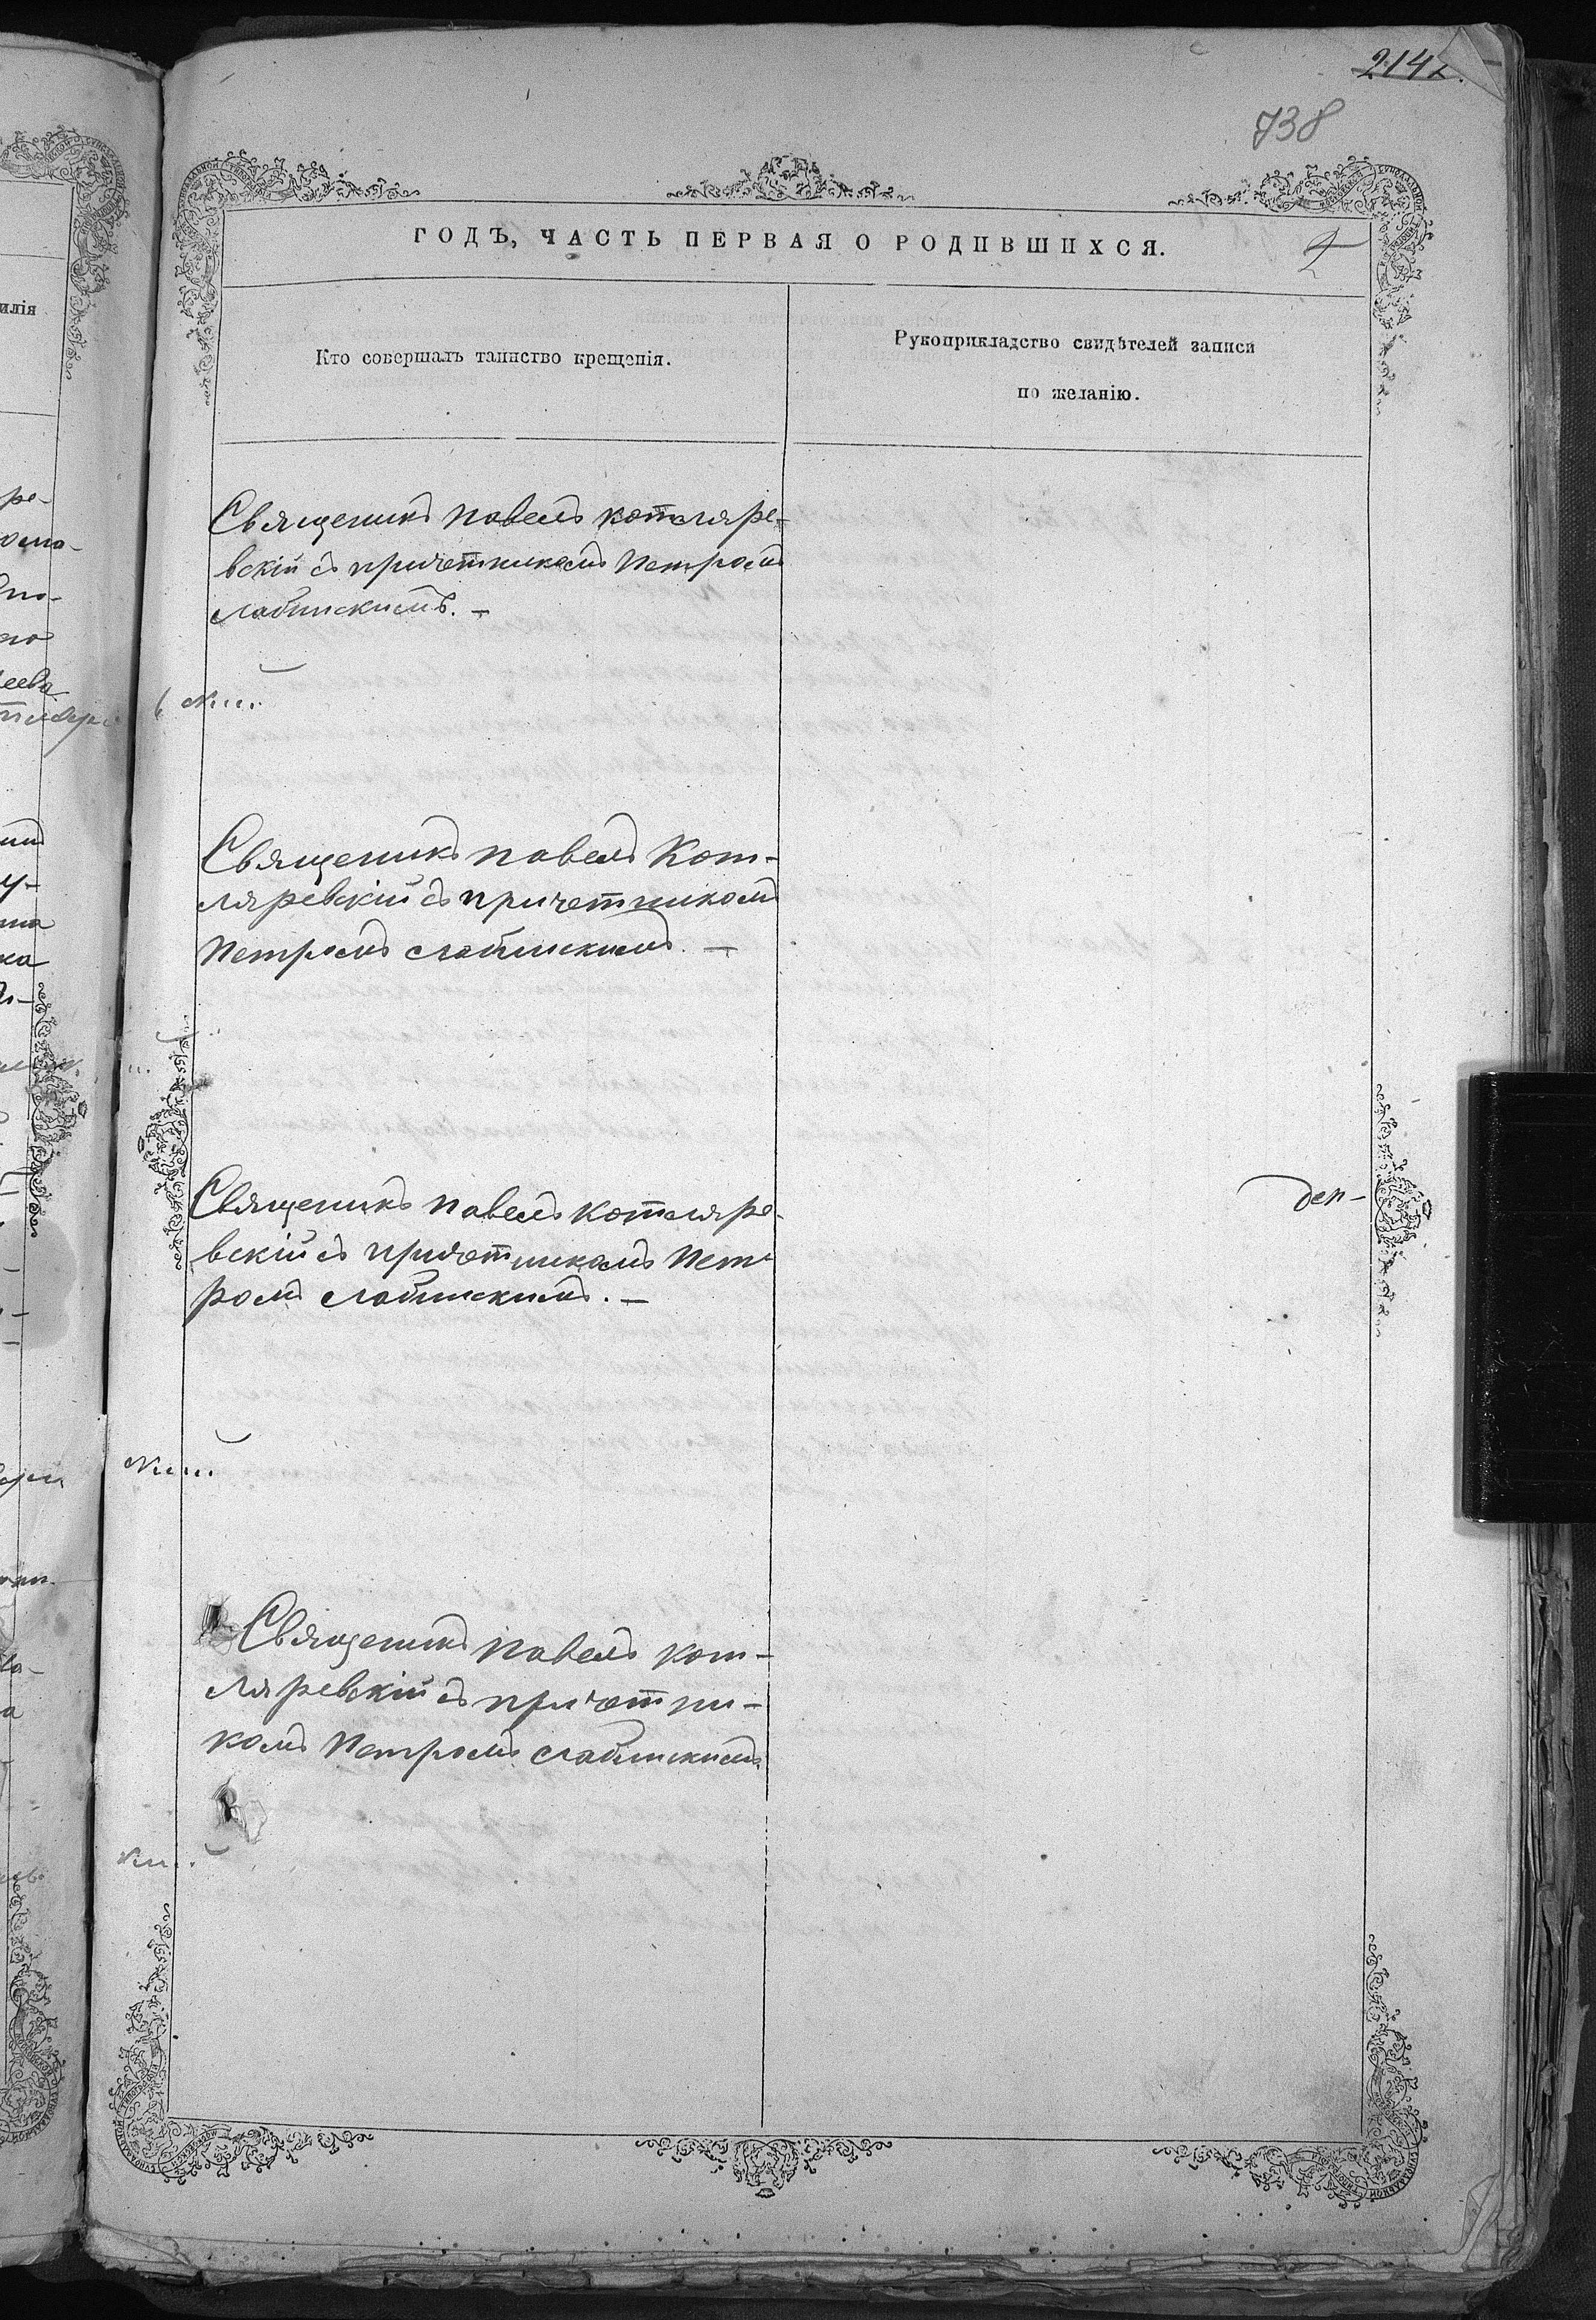 2142.
738
ГОДЪ, ЧАСТЬ ПЕРВАЯ О РОДИВШИХСЯ.
2
Кто совершалъ таинство крещенія.
Рукоприкладство свидѣтелей записи
по желанію.
илія
Священикъ Павелъ Котляре-
вскій съ причетникомъ Петромъ
Слабинскимъ. –
Священикъ Павелъ Кот-
ляревскій съ причетникомъ
Петромъ Слабинскимъ. –
Священикъ Павелъ Котляре-
вскій съ причетникомъ Пет-
ромъ Слабинскимъ. –
Священикъ Павелъ Кот-
ляревскій съ причетни-
комъ Петромъ Слабинскимъ